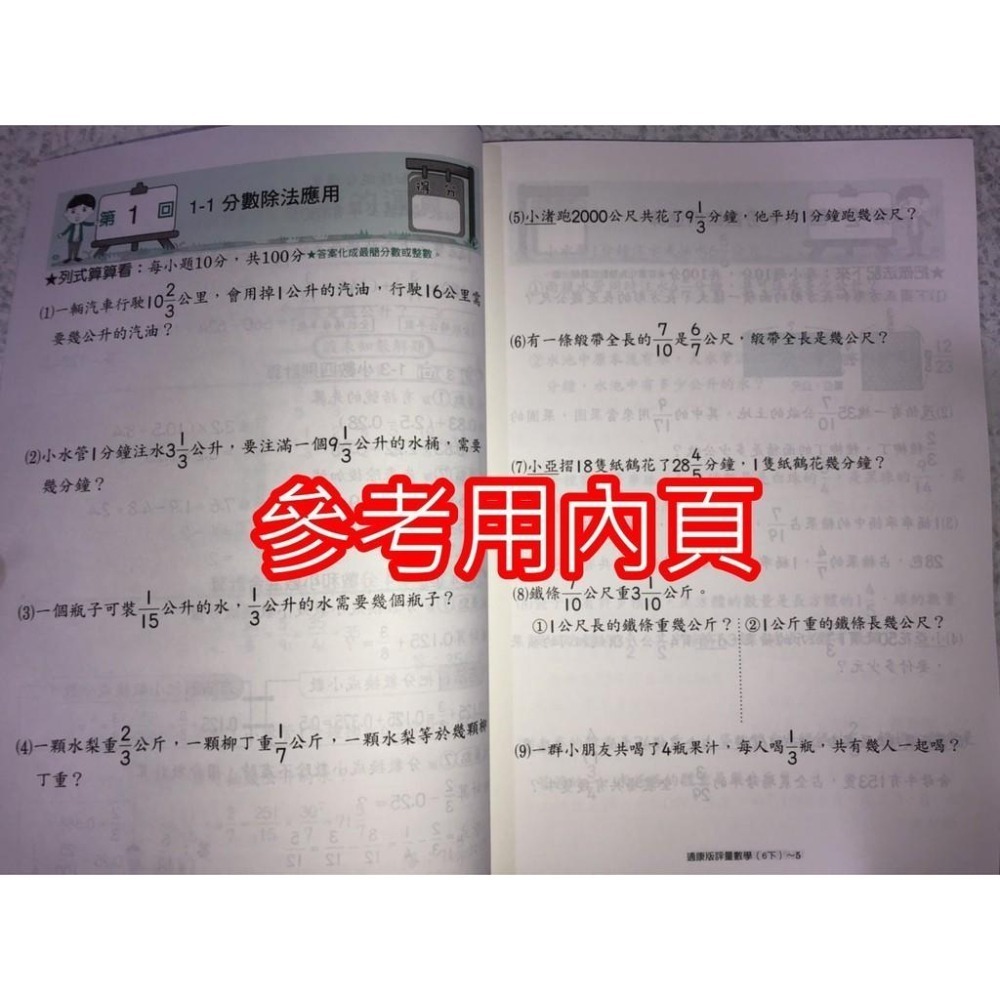 第 1 回
1-1 分數除法應用
得分
★列式算算看：每小題10分，共100分★答案化成最簡分數或整數。
(1)一輛汽車行駛10 2/3 公里，會用掉1公升的汽油，行駛16公里需
要幾公升的汽油？
(2)小水管1分鐘注水3 1/3 公升，要注滿一個9 1/3 公升的水桶，需要
幾分鐘？
(3)一個瓶子可裝 1/15 公升的水，1/3 公升的水需要幾個瓶子？
(4)一顆水梨重 2/3 公斤，一顆柳丁重 1/7 公斤，一顆水梨等於幾顆柳
丁重？
(5)小渚跑2000公尺共花了9 1/3 分鐘，他平均1分鐘跑幾公尺？
(6)有一條緞帶全長的 7/10 是 6/7 公尺，緞帶全長是幾公尺？
(7)小亞摺18隻紙鶴花了28 4/5 分鐘，1隻紙鶴花幾分鐘？
參考用內頁
(8)鐵條 7/10 公尺重3 1/10 公斤。
①1公尺長的鐵條重幾公斤？ ②1公斤重的鐵條長幾公尺？
(9)一群小朋友共喝了4瓶果汁，每人喝 1/3 瓶，共有幾人一起喝？
適康版評量數學(6下)～5